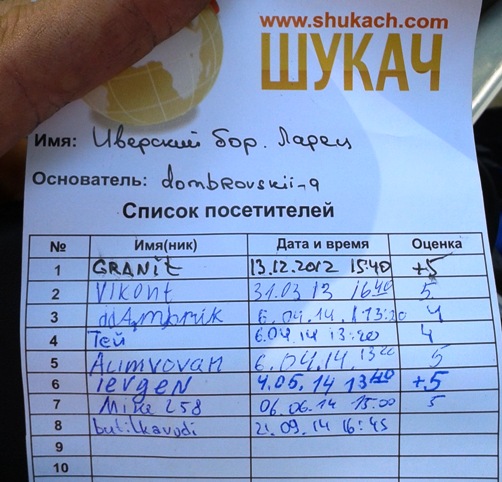 www.shukach.com
ШУКАЧ
Имя: Иверский бор. Ларец
Основатель: dombrovskii-9
Список посетителей
№ Имя(ник) Дата и время Оценка
1 GRANiT 13.12.2012 15:40 +5
2 Vikont 31.03 13 16 40 5
3 6.04.14. 13:20 4
4 Тей 6.04.14 13:20 4
5 Alimvovan 6.04.14. 13 20 5
6 ievgen 4.05.14 13 40 +5
7 Mike 258 06.06.14 15:00 5
8 butilkavodi 21.09.14 16:45
9
10